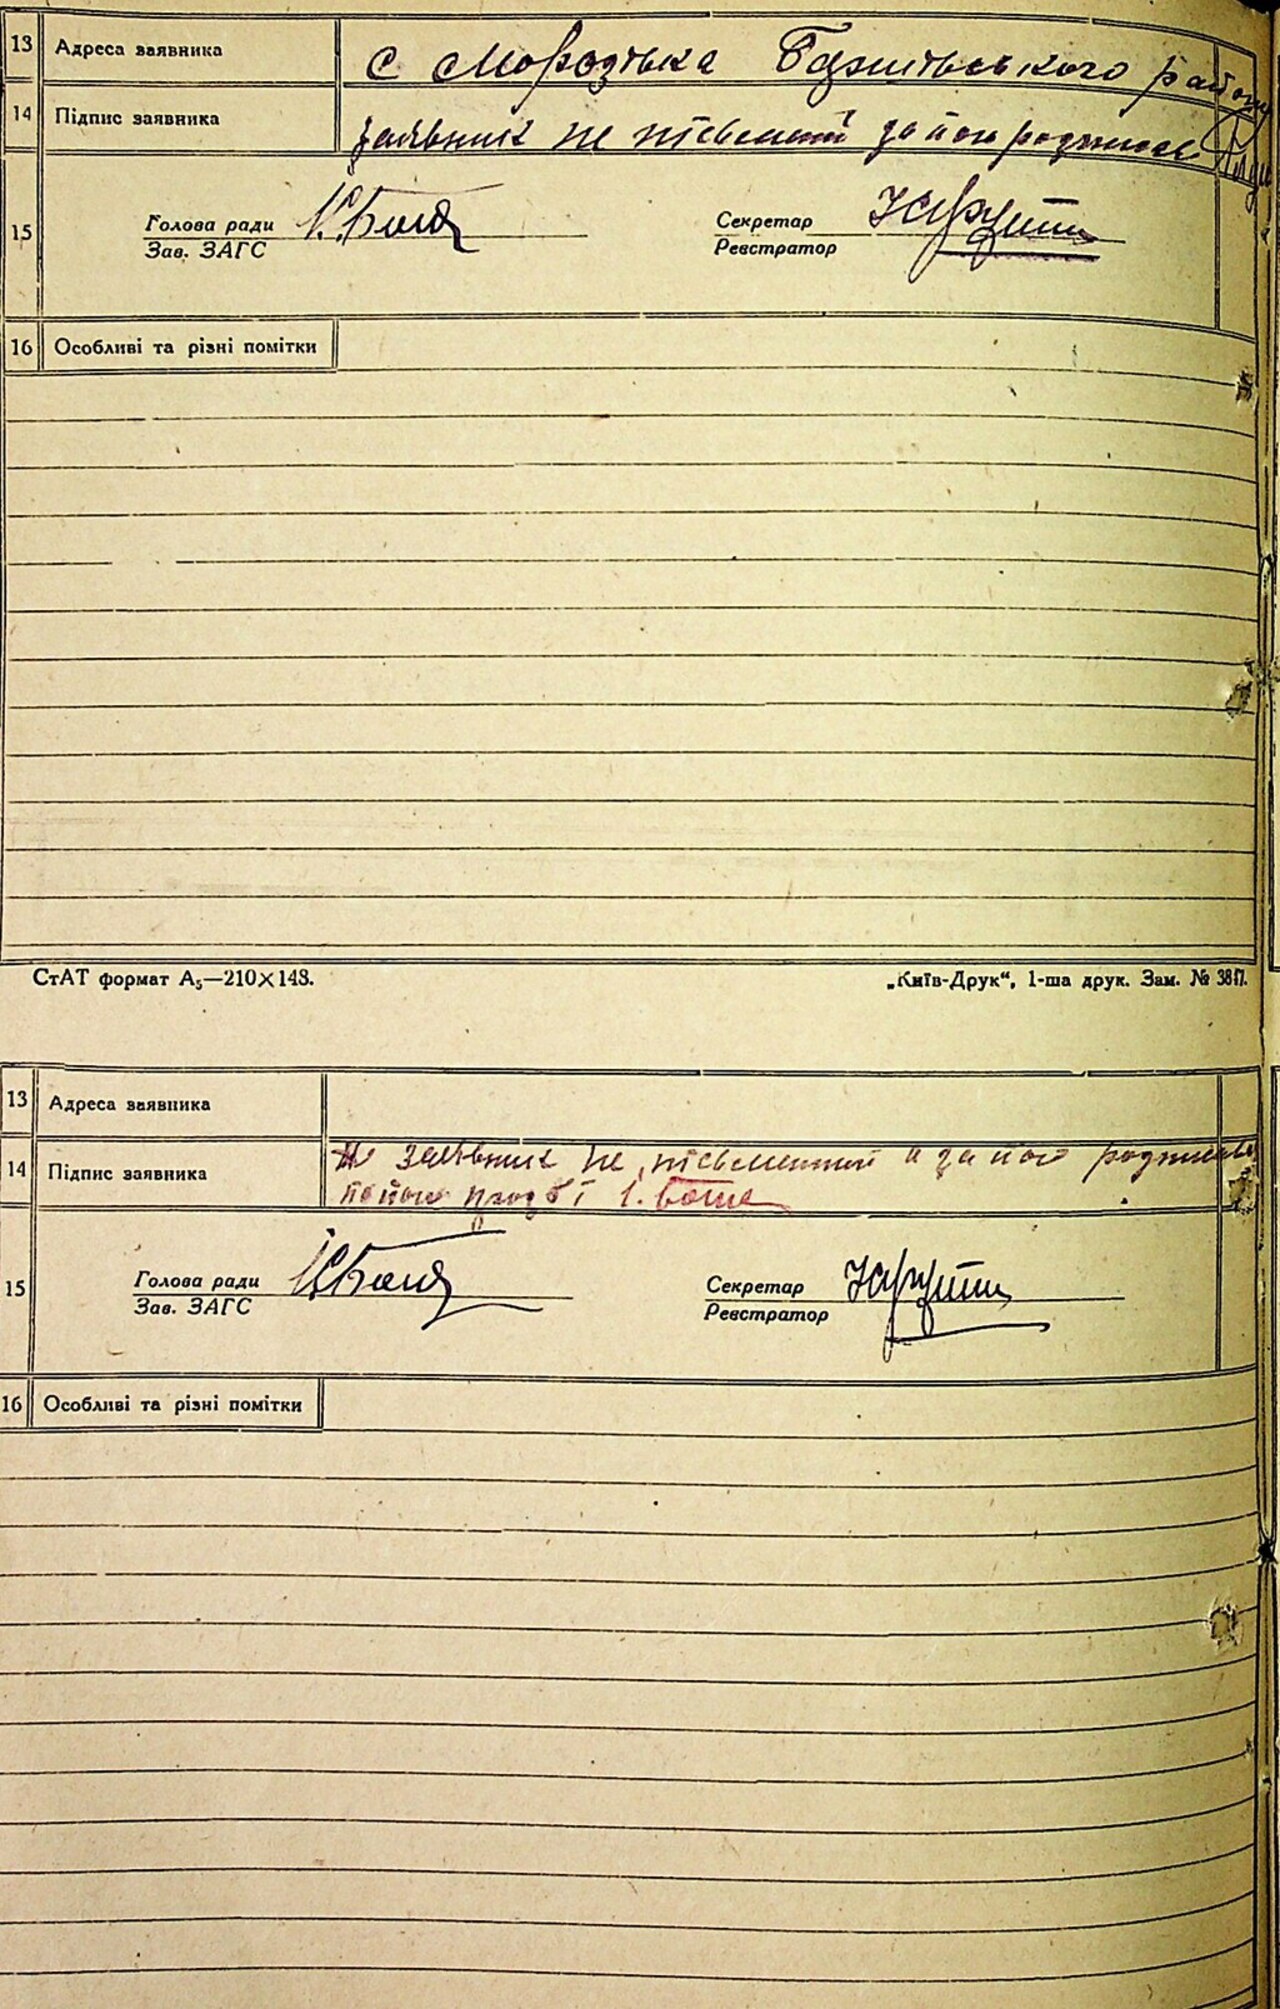 13 Адреса заявника с Морозівка Баришівського району
14 Підпис заявника заявник не пісьменний за його росписався
15 Голова ради
Зав. ЗАГС
Секретар
Реєстратор
16 Особливі та різні помітки
СтАТ формат А₅—210×143.
„Київ-Друк“, 1-ша друк. Зам. № 3817.
13 Адреса заявника
14 Підпис заявника заявник не пісьменний а за його
по його
15 Голова ради
Зав. ЗАГС
Секретар
Реєстратор
16 Особливі та різні помітки